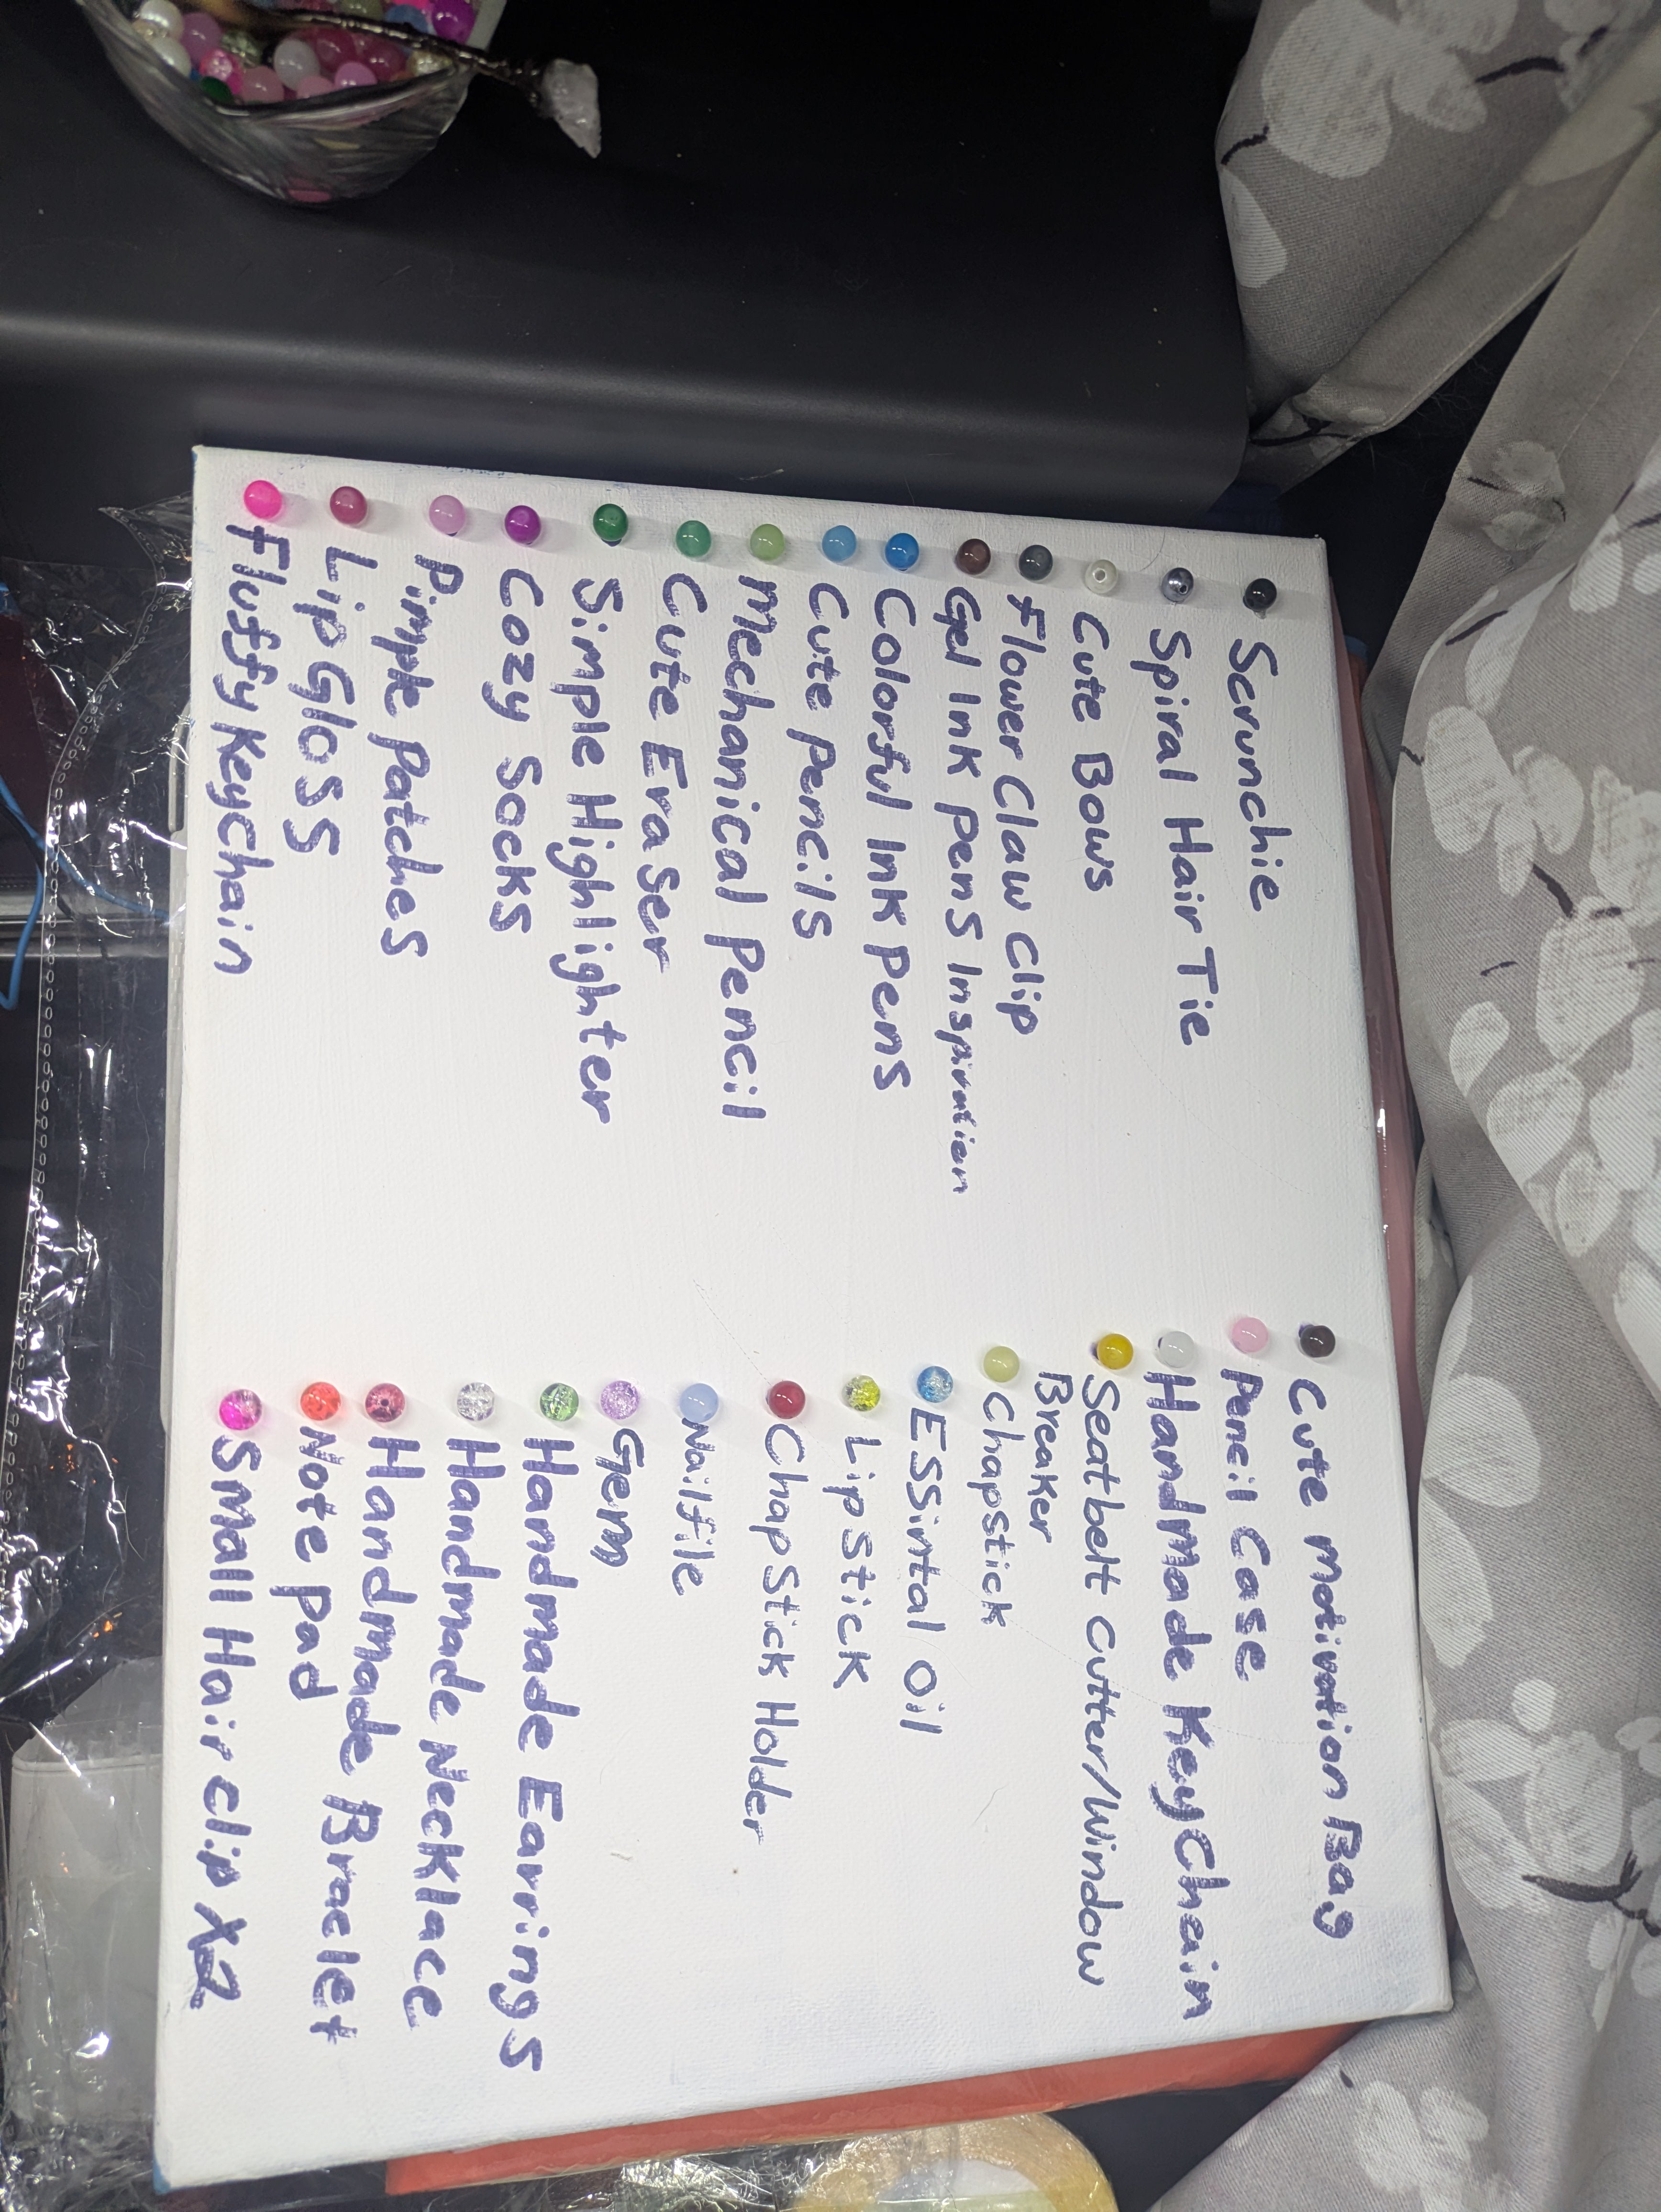 Scrunchie
Spiral Hair Tie
Cute Bows
Flower Claw Clip
Gel Ink Pens Inspiration
Colorful Ink Pens
Cute Pencils
Mechanical Pencil
Cute Eraser
Simple Highlighter
Cozy Socks
Pimple Patches
Lip Gloss
Fluffy KeyChain
Cute Motivation Bag
Pencil Case
HandMade KeyChain
Seatbelt Cutter/Window
Breaker
Chapstick
ESSintal Oil
LipStick
ChapStick Holder
Nailfile
Gem
Handmade Earrings
Handmade Necklace
Handmade Bracelet
Note Pad
Small Hair clip X2